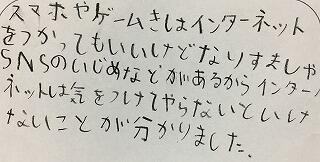 スマホやゲームきはインターネット
をつかってもいいけどなりすましや
SNSのいじめなどがあるからインター
ネットは気をつけてやらないといけ
ないことが分かりました。